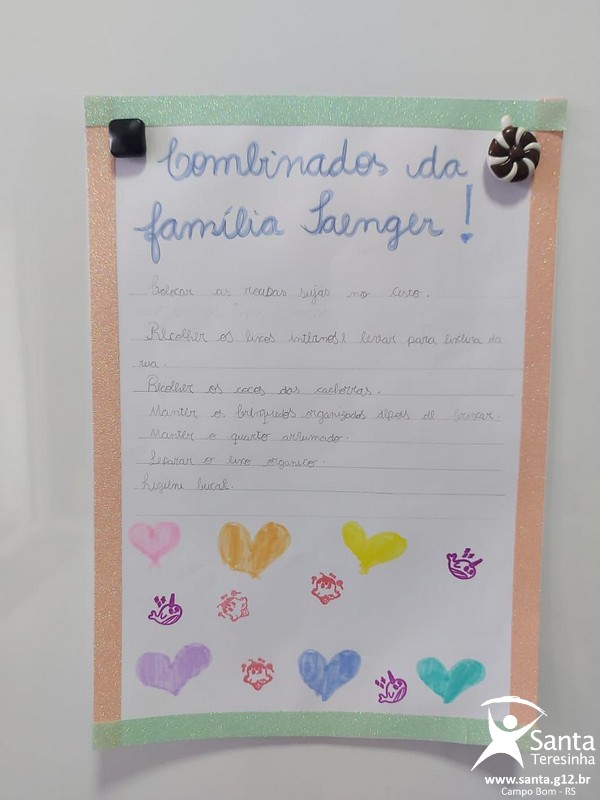 Combinados da
família Saenger!
Colocar as roupas sujas no cesto.
Recolher os lixos internos e levar para lixeira da
rua.
Recolher os cocos das cachorras.
Manter os brinquedos organizados depois de brincar.
Manter o quarto arrumado.
Separar o lixo organico.
higiene bucal.
Santa
Teresinha
www.santa.g12.br
Campo Bom - RS